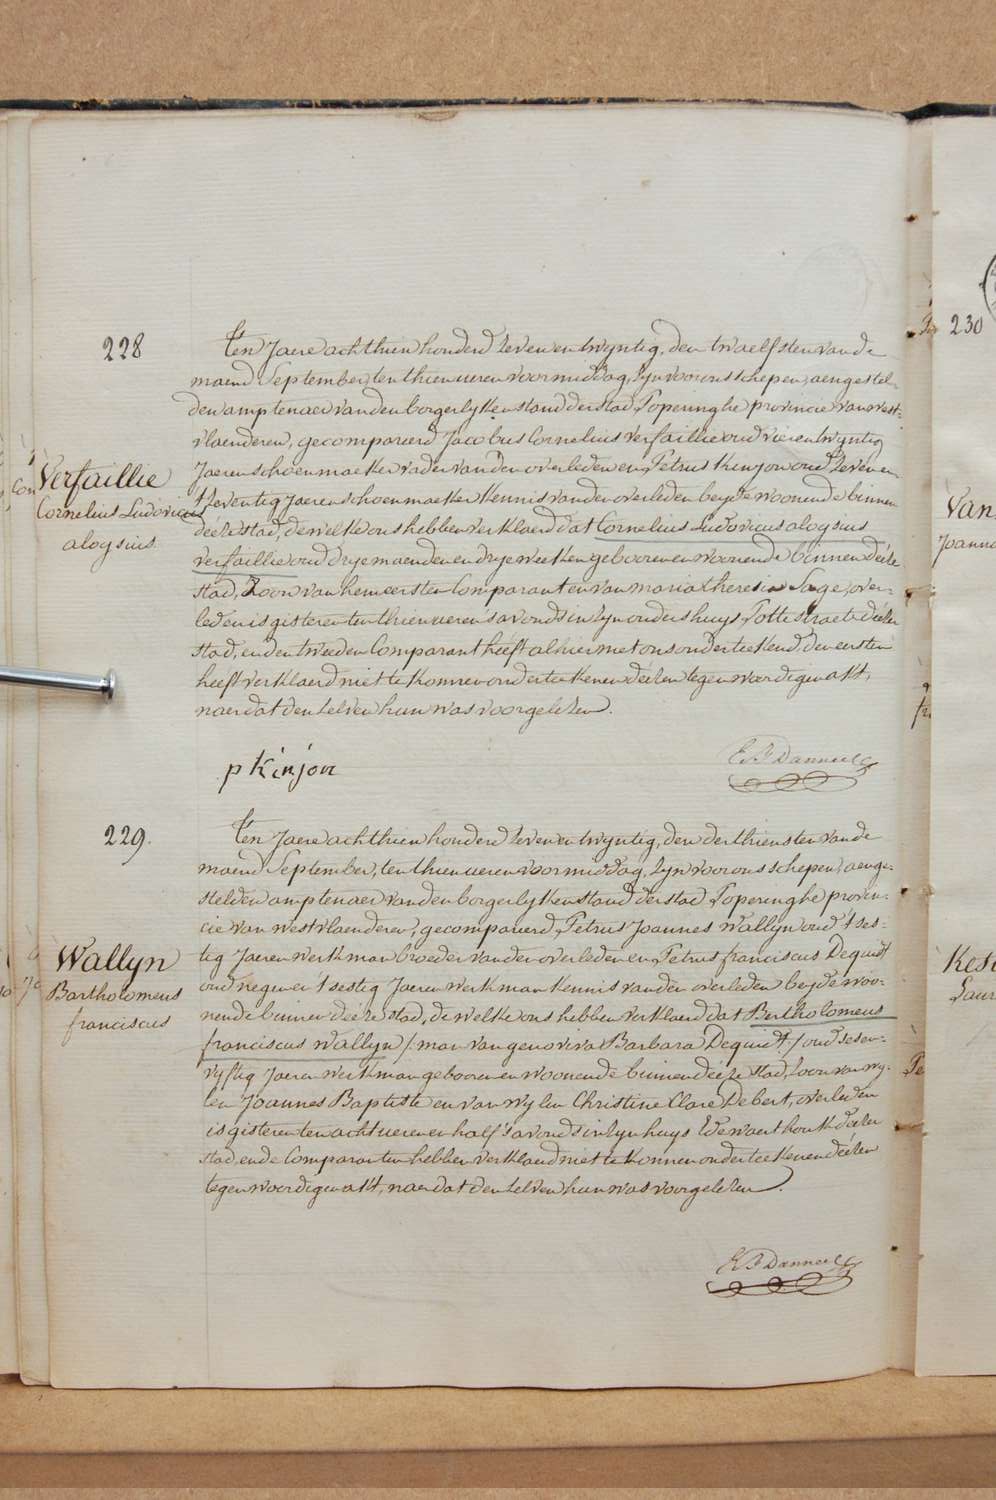 228
Ten Jaere achthien honderd zeven en twyntig, den twaelfsten van de
maend September, ten thien ueren voormiddag, zyn voor ons schepen, aengestel-
den amptenaer van den borgerlyken stand der stad Poperinghe provincie van west-
vlaenderen, gecompareerd Jacobus Cornelius verfaillie oud vier en twyntig
Jaeren schoenmaeker vader van den overleden en Petrus Kinjon oud zeven en
Verfaillie
Cornelius Ludovicus
aloysius
t'seventig jaeren schoenmaeker kennis van den overleden beyde woonende binnen
deéze stad, de welke ons hebben verklaerd dat Cornelius Ludovicus aloysius
verfaillie oud drye maenden en drye weeken gebooren en woonende binnen déeze
stad, Zoon van hem eersten Comparant en van maria theresia Sage, over-
leden is gisteren ten thien ueren s'avonds in zyn ouders huys Pottestraete déezer
stad, en den tweeden Comparant heéft alhier met ons onderteekend, den eersten
heeft verklaerd niet te konnen onderteekenen deézen tegenwoordigen akt,
naer dat den zelven hun was voorgelezen.
p kinjon
E. F. Danneel
229.
Ten Jaere achthien honderd zeven en twyntig, den derthiensten van de
maend September, ten thien ueren voormiddag, zyn voor ons schepen, aenge-
stelden amptenaer van den borgerlyken stand der stad Poperinghe provin-
cie van westvlaenderen, gecompareerd Petrus Joannes Wallyn oud t'ses-
tig Jaeren werkman broeder van den overleden en Petrus franciscus Dequidt
Wallyn
Bartholomeus
franciscus
oud negen en t'sestig Jaeren werkman kennis van den overleden beyde woo-
nende binnen deéze stad, de welke ons hebben verklaerd dat Bartholomeus
franciscus Wallyn /: man van genoveva Barbara Dequidt :/ oud sesen-
vyftig Jaeren werkman gebooren en woonende binnen deéze stad, Zoon van wy-
len Joannes Baptiste en van wylen Christine Clare Debert, overleden
is gisteren ten acht ueren en half s'avonds in zyn huys Edewaerthouk déezer
stad, en de Comparanten hebben verklaerd niet te konnen onderteekenen déezen
tegenwoordigen akt, naer dat den zelven hun was voorgelezen.
E. F. Danneel
230
Van
Joanne
Kes
Laur